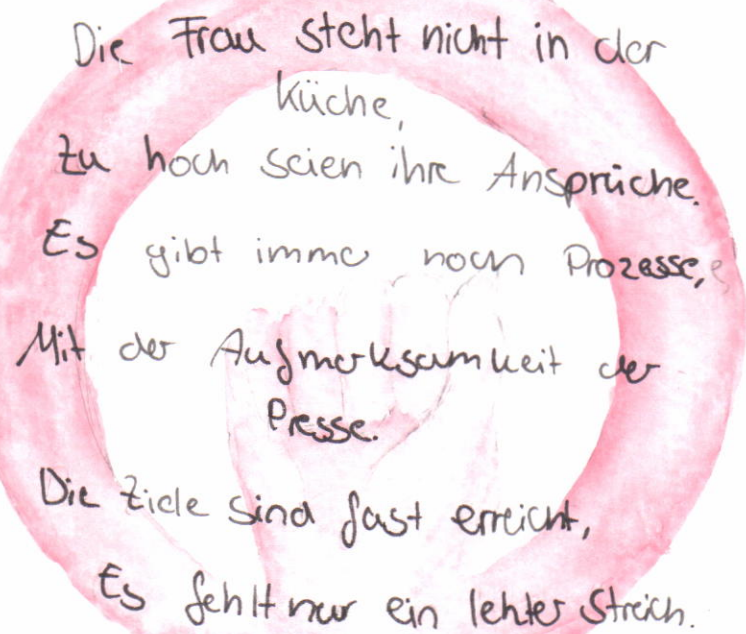 Die Frau steht nicht in der
Küche,
Zu hoch seien ihre Ansprüche.
Es gibt immer noch Prozesse,
Mit der Aufmerksamkeit der
Presse.
Die Ziele sind fast erreicht,
Es fehlt nur ein letzter Streich.